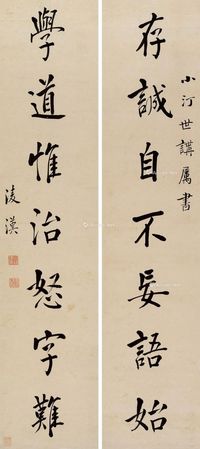 存誠自不妄語始
小汀世講屬書
學道惟治怒字難
凌漢